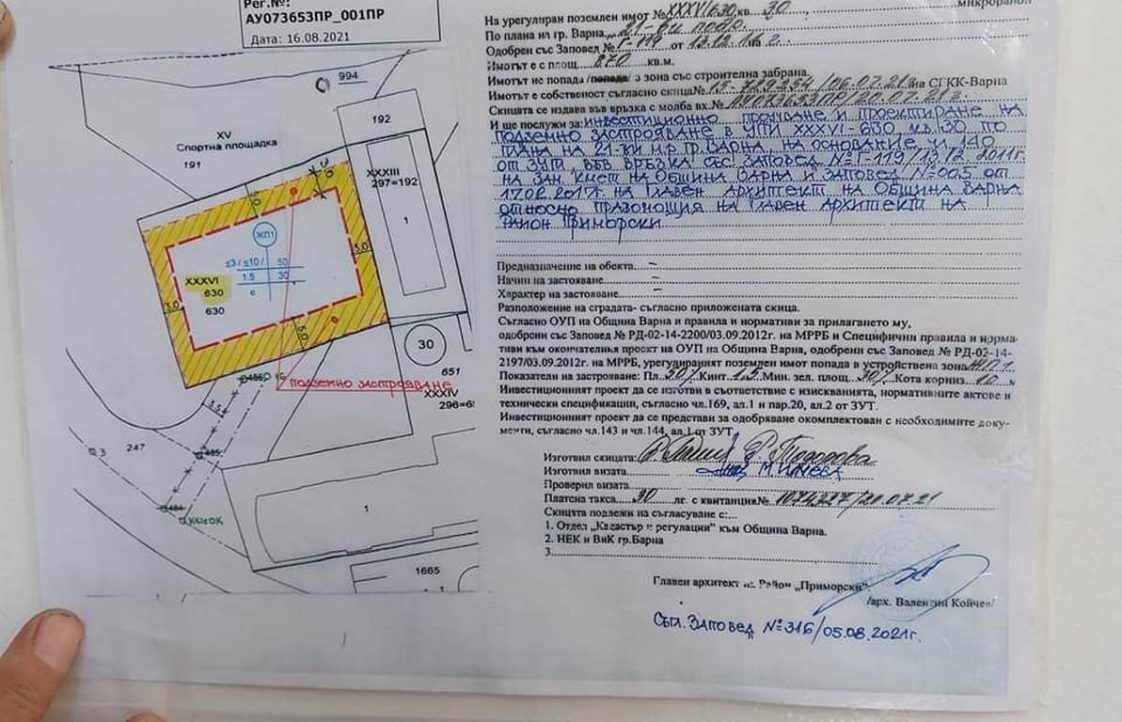 Рег.№:
АУ073653ПР_001ПР
Дата: 16.08.2021
994
192
XV
Спортна площадка
191
XXXIII
297=192
1
5.0
3.0
ЖП1
≤3/≤10/ 50
1.5 30
XXXVI
630
630
3.0
5.0
30
651
подземно застрояване
XXXIV
296=65
3.5
247
3
1
1665
1
микрорайон
На урегулиран поземлен имот №XXXVI/630 кв. 30,
По плана из гр. Варна, 21-ви подр.
Одобрен със Заповед №Г-119 от 13.12.11 г.
Имотът е с площ 870 кв.м.
Имотът не попада /попада/ в зона със строителна забрана.
Имотът е собственост съгласно скица№ 15-729254/06.07.21г на СГКК-Варна
Скицата се издава във връзка с молба вх.№ АУ073653ПР/20.07.21г.
И ще послужи за: инвестиционно проучване и проектиране на
подземно застрояване в УПИ XXXVI-630, кв. 30 по
плана на 21-ви м.р. гр. Варна, на основание чл. 140
от ЗУТ, във връзка със заповед №Г-119/13.12.2011г
на Зам. кмет на Община Варна и Заповед №005 от
17.02.2017г. на Главен архитект на Община Варна
относно правомощия на Главен архитект на
район Приморски.
Предназначение на обекта. –
Начин на застояване. –
Характер на застояване. –
Разположение на сградата- съгласно приложената скица.
Съгласно ОУП на Община Варна и правила и нормативи за прилагането му,
одобрени със Заповед № РД-02-14-2200/03.09.2012г. на МРРБ и Специфични правила и норма-
тиви към окончателния проект на ОУП на Община Варна, одобрени със Заповед № РД-02-14-
2197/03.09.2012г. на МРРБ, урегулираният поземлен имот попада в устройствена зона ЖП1
Показатели на застрояване: Пл. 30/. Кинт 1.5 Мин. зел. площ 30/. Кота корниз 10 м
Инвестиционният проект да се изготви в съответствие с изискванията, нормативните актове и
технически спецификации, съгласно чл.169, ал.1 и пар.20, ал.2 от ЗУТ.
Инвестиционният проект да се представи за одобряване окомплектован с необходимите доку-
менти, съгласно чл.143 и чл.144, ал.1 от ЗУТ.
Изготвил скицата: Р. Тодорова
Изготвил визата М. Илиева
Проверил визата
Платена такса 30 лг. с квитанция№ /20.07.21
Скицата подлежи на съгласуване с:
1. Отдел „Кадастър и регулации" към Община Варна.
2. НЕК и ВиК гр.Варна
3.
Главен архитект на Район „Приморски":
/арх. Валентин Койчев/
Съгл. Заповед №316/05.08.2021г.